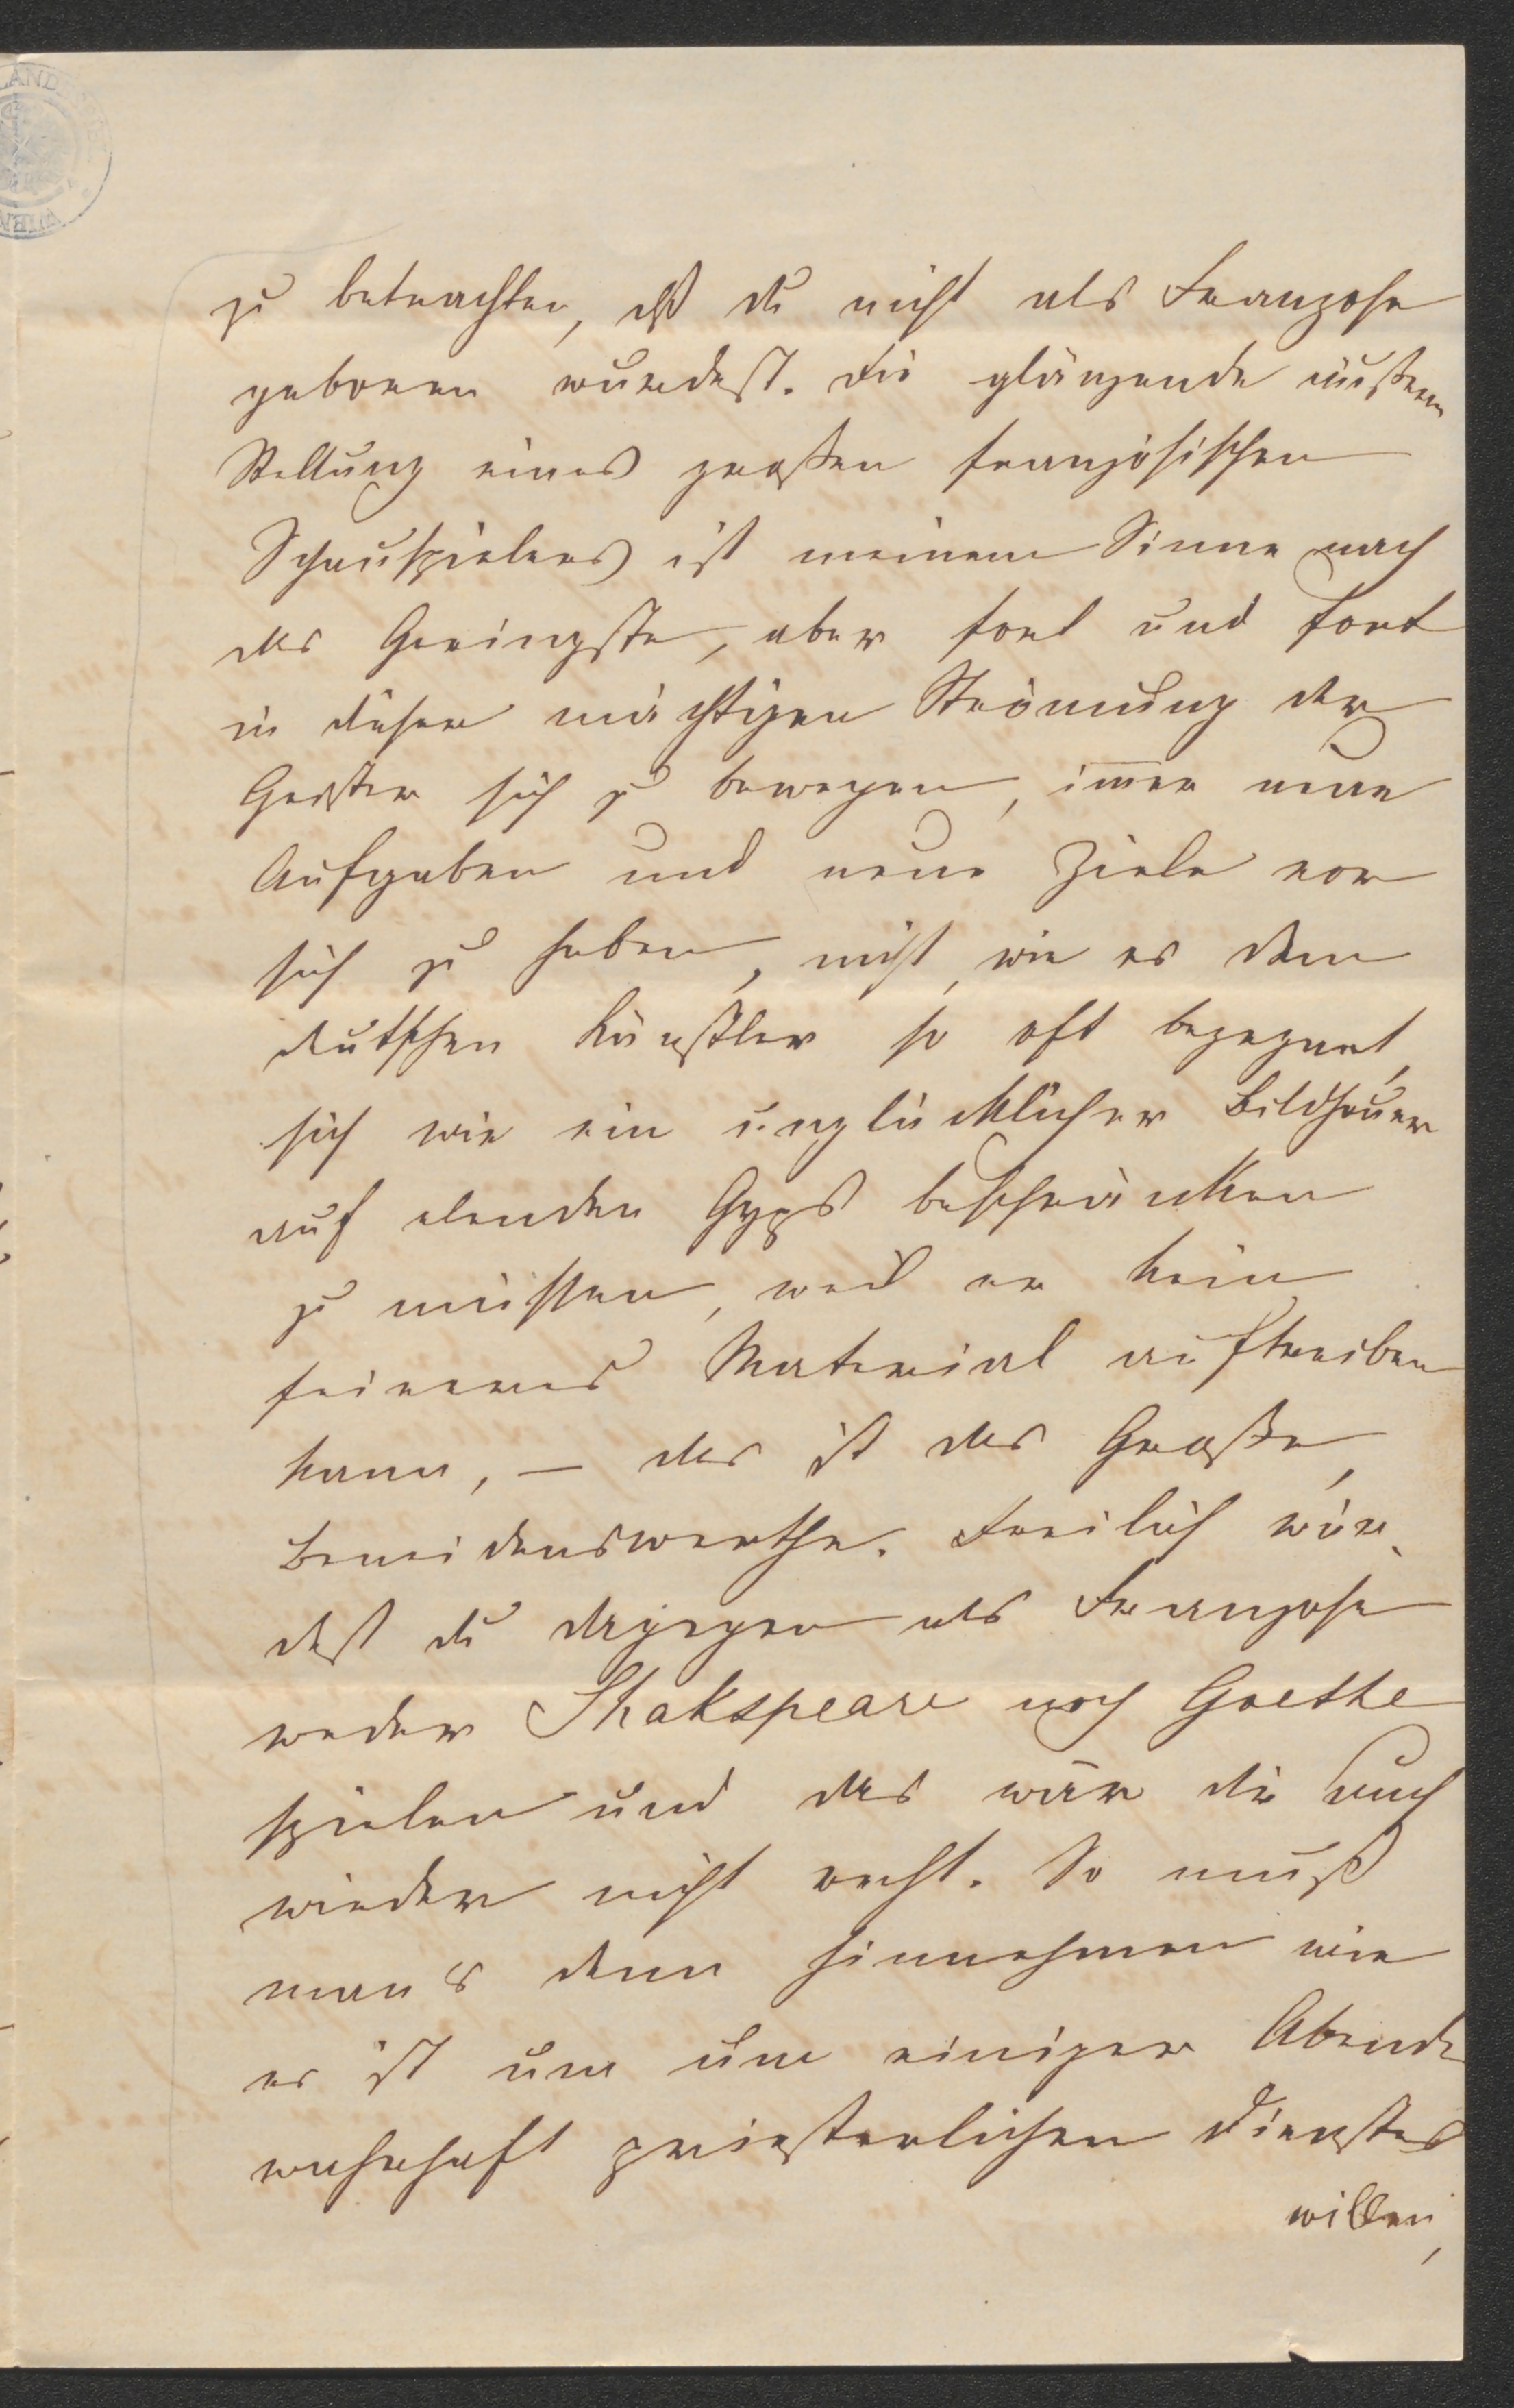 zu betrachten, dß du nicht als Franzose
geboren wurdest. Die glänzende äußere
Stellung eines großen französischen
Schauspielers ist meinem Sinne nach
das Geringste, aber fort und fort
in dieser mächtigen Strömung der
Geister sich zu bewegen, immer neue
Aufgaben und neue Ziele vor
sich zu haben, nicht, wie es dem
deutschen Künstler so oft begegnet,
sich wie ein unglücklicher Bildhauer
auf elenden Gyps beschränken
zu müssen, weil er kein
feineres Material auftreiben
kann, – das ist das Große,
Beneidenswerthe. Freilich wür-
dest du dagegen als Franzose
weder Shakspeare noch Goethe
spielen und das wär dir auch
wieder nicht recht. So muß
man's denn hinnehmen wie
es ist um einiger Abende
wahrhaft priesterlichen Dienstes
willen,